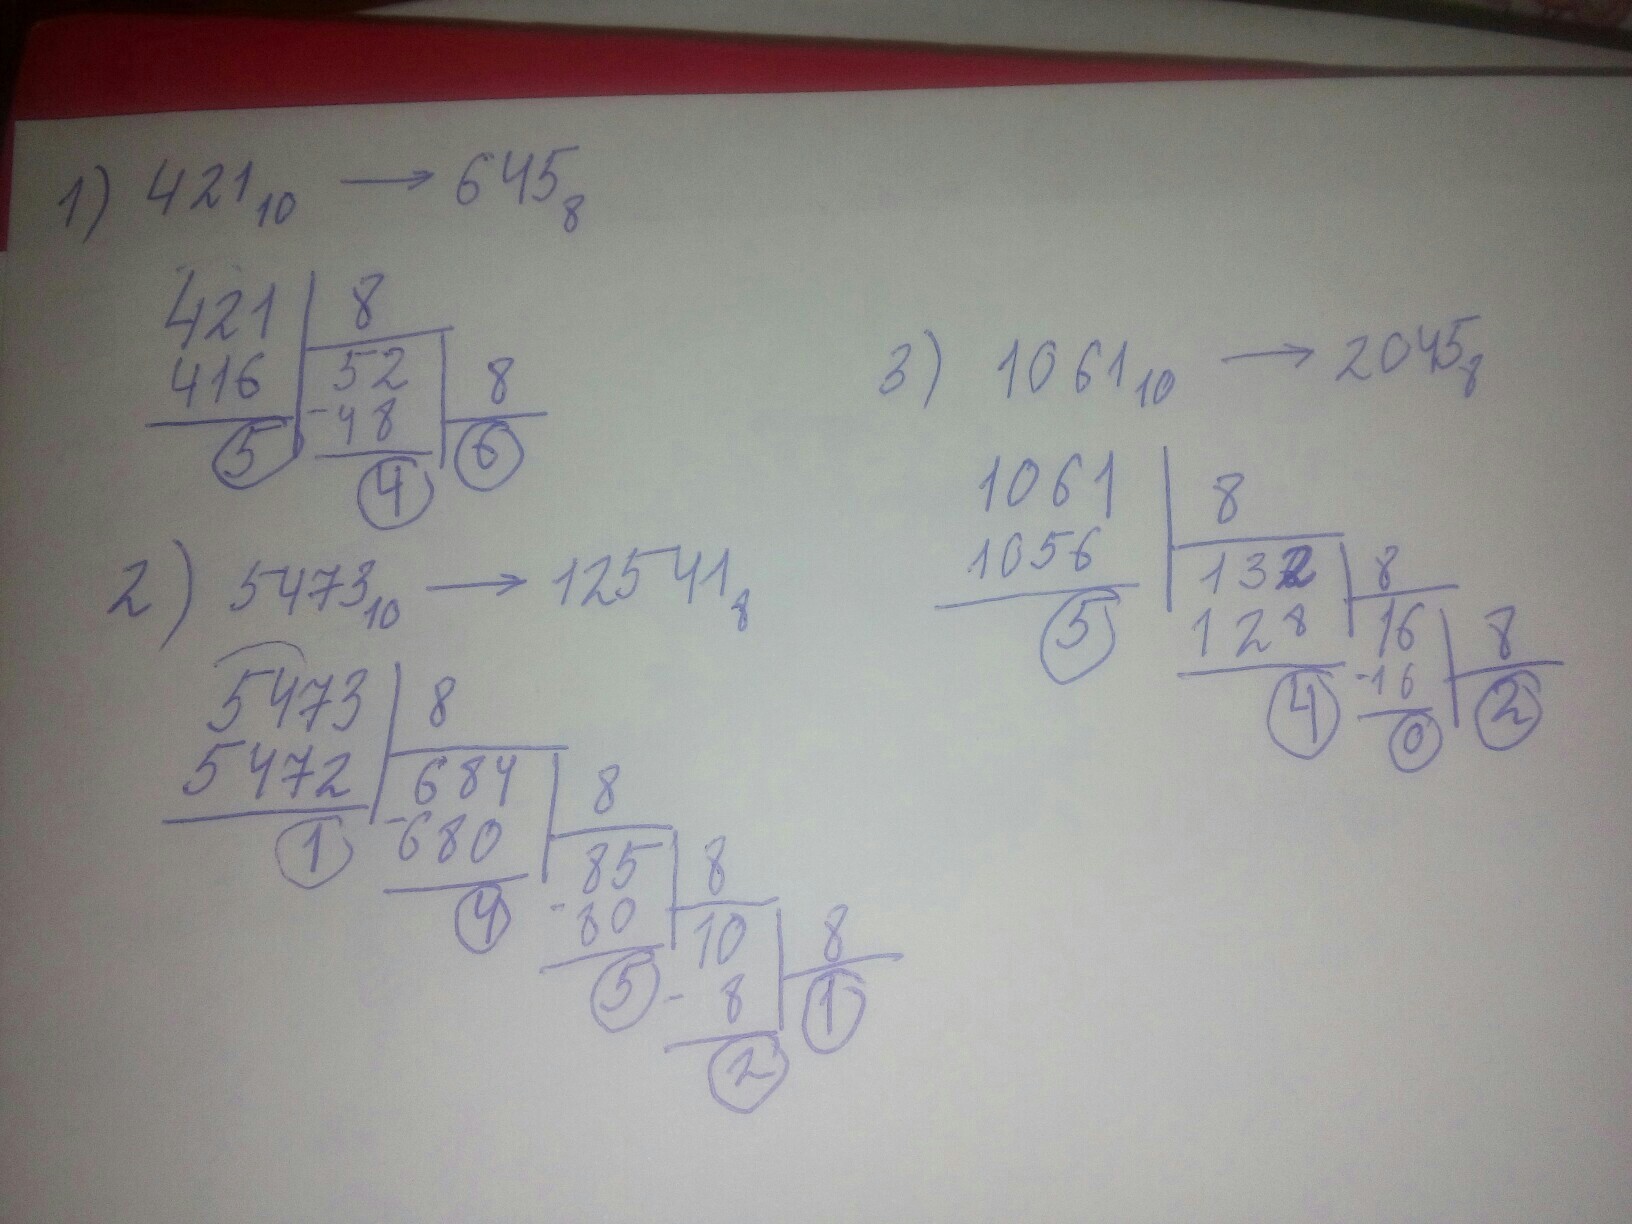 1) 421₁₀ → 645₈
421 | 8
416 | 52 | 8
5 | -48 | 6
4
2) 5473₁₀ → 12541₈
5473 | 8
5472 | 684 | 8
1 | -680 | 85 | 8
4 | -80 | 10 | 8
5 | -8 | 1
2
3) 1061₁₀ → 2045₈
1061 | 8
1056 | 132 | 8
5 | 128 | 16 | 8
4 | -16 | 2
0